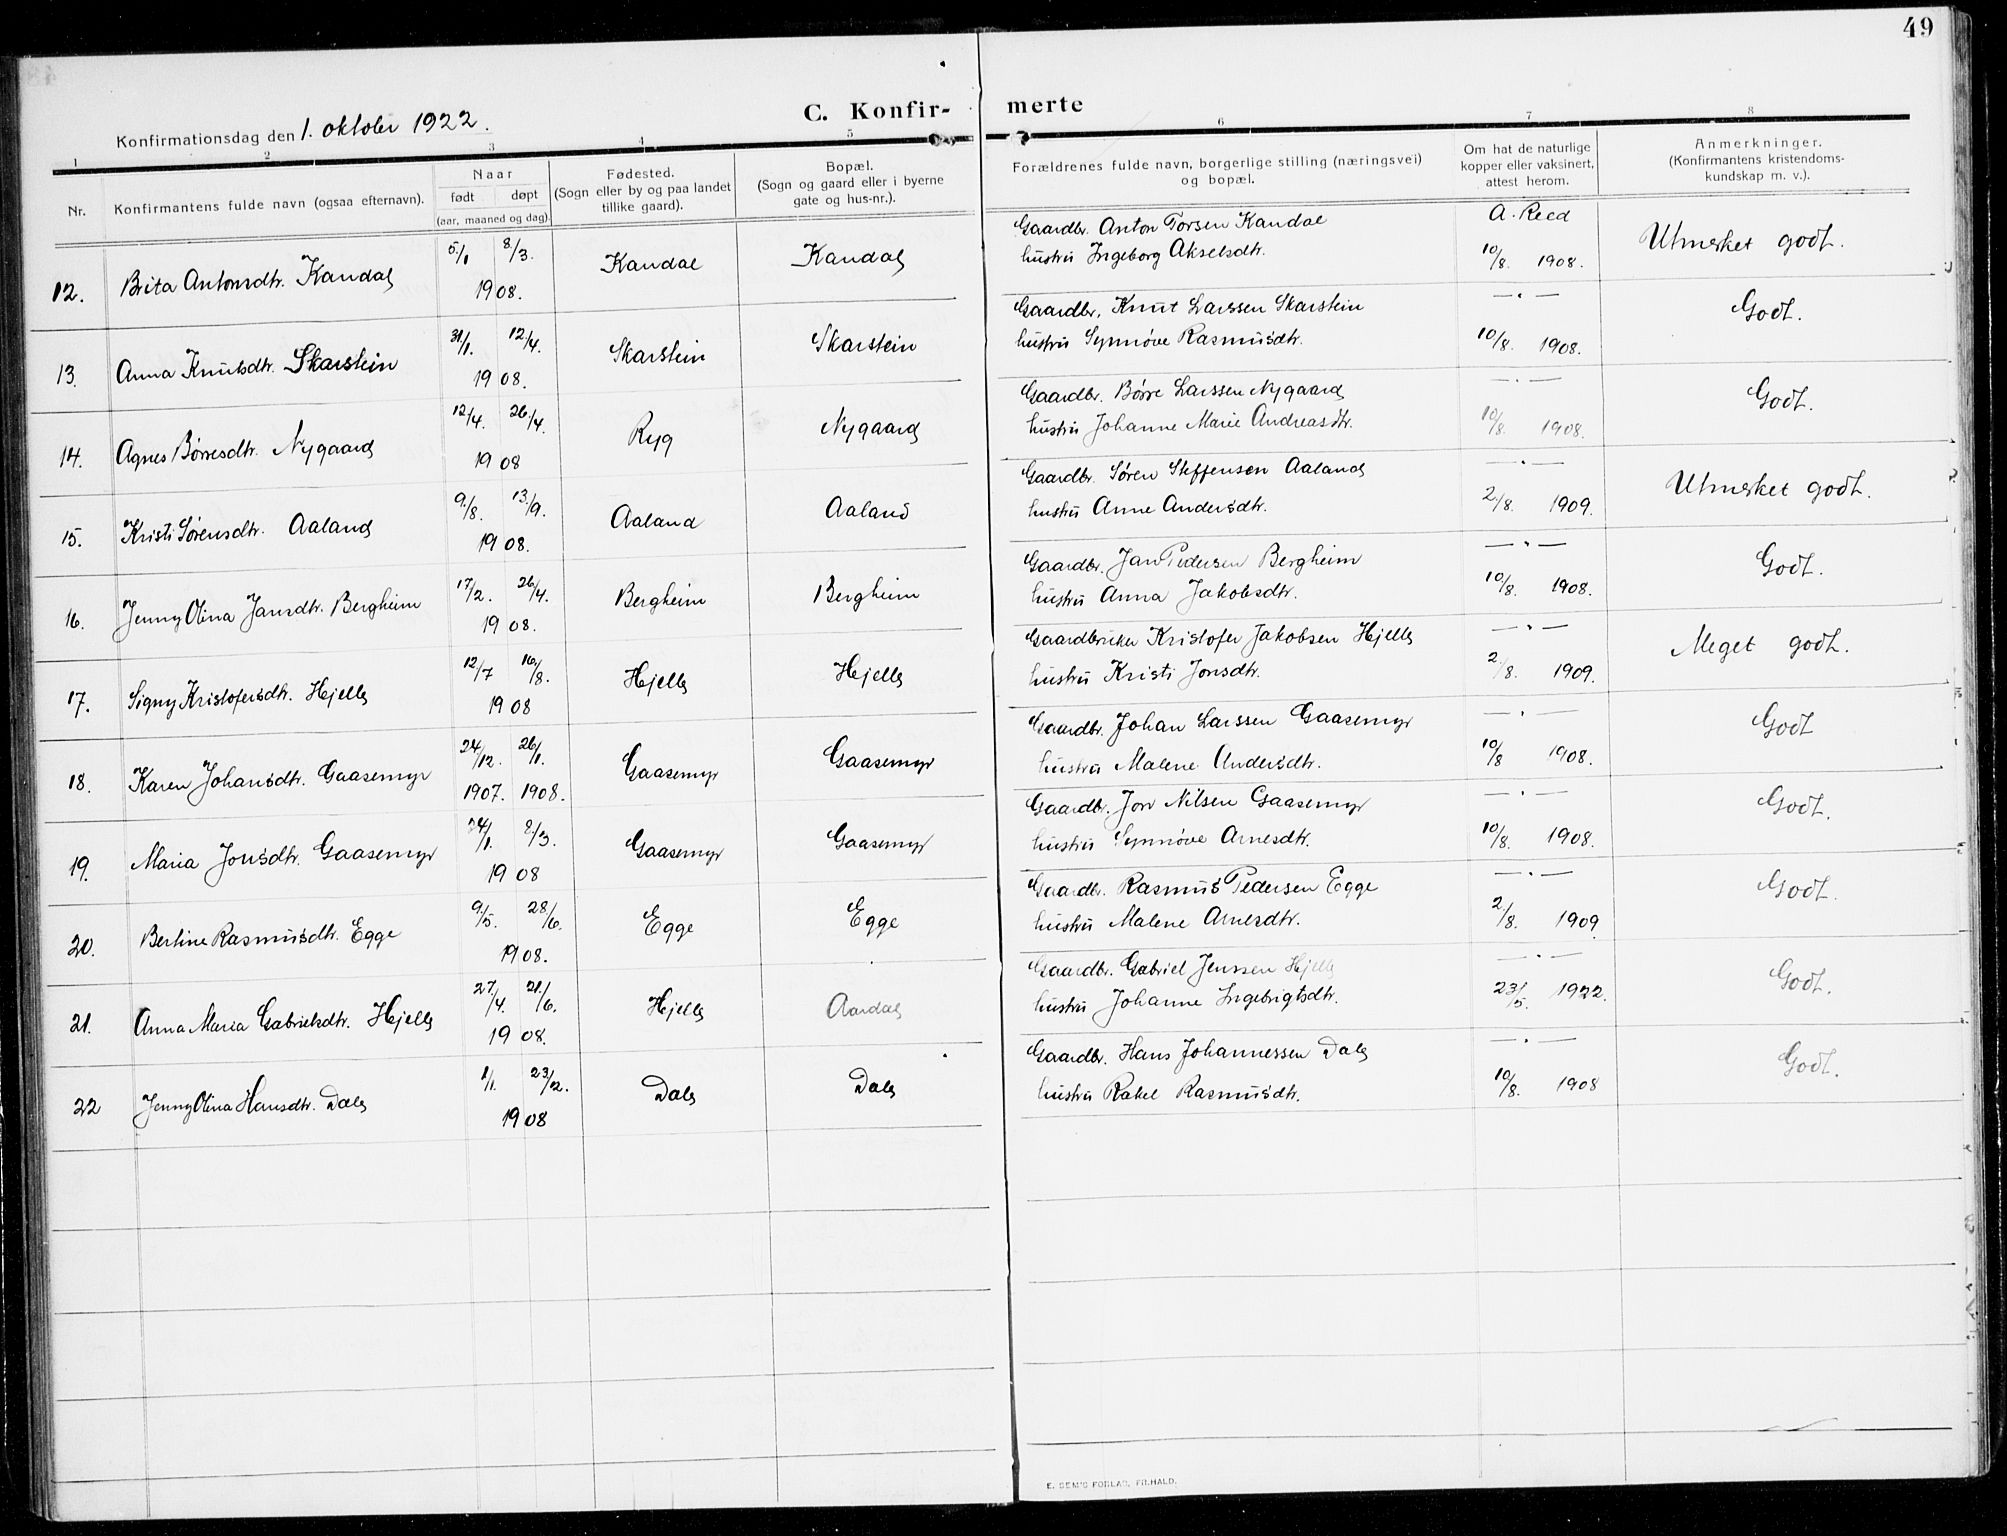 49
C. Konfir- merte
Konfirmationsdag den 1. oktober 1922.
1 2 3 4 5 6 7 8
Nr.
Konfirmantens fulde navn (ogsaa efternavn).
Naar
født døpt
(aar, maaned og dag).
Fødested.
(Sogn eller by og paa landet
tillike gaard).
Bopæl.
(Sogn og gaard eller i byerne
gate og hus-nr.).
Forældrenes fulde navn, borgerlige stilling (næringsvei)
og bopæl.
Om hat de naturlige
kopper eller vaksinert,
attest herom.
Anmerkninger.
(Konfirmantens kristendoms-
kundskap m. v.).
12. Brita Antonsdtr. Kandal 5/1 8/3. 1908. Kandal Kandal
Gaardbr. Anton Torsen Kandal A. Reed
hustru Ingeborg Akselsdtr. 10/8. 1908. Utmerket godt.
13. Anna Knutsdtr. Skarstein 31/1. 12/4. 1908. Skarstein Skarstein
Gaardbr. Knut Larssen Skarstein — " —
hustru Synnøve Rasmusdtr. 10/8. 1908. Godt.
14. Agnes Børresdtr. Nygaard 12/4. 26/4. 1908 Ryg Nygaard
Gaardbr. Børre Larssen Nygaard — " —
hustru Johanne Marie Andreasdtr. 10/8. 1908. Godt.
15. Kristi Sørensdtr. Aaland 9/8. 13/9. 1908. Aaland Aaland
Gaardbr. Søren Steffensen Aaland — " —
hustru Anne Andersdtr. 2/8. 1909. Utmerket godt.
16. Jenny Olina Jansdtr. Bergheim 17/2. 26/4. 1908. Bergheim Bergheim
Gaardbr. Jan Pedersen Bergheim — " —
hustru Anna Jakobsdtr. 10/8. 1908. Godt.
17. Signy Kristofersdtr. Hjelle 12/7 16/8. 1908 Hjelle Hjelle
Gaardbruker Kristofer Jakobsen Hjelle — " —
hustru Kristi Jonsdtr. 2/8. 1909. Meget godt.
18. Karen Johansdtr. Gaasemyr 24/12. 26/1. 1907. 1908. Gaasemyr Gaasemyr
Gaardbr. Johan Larssen Gaasemyr — " —
hustru Malene Andersdtr. 10/8 1908. Godt
19. Maria Jonsdtr. Gaasemyr 24/1. 8/3. 1908 Gaasemyr Gaasemyr
Gaardbr. Jon Nilsen Gaasemyr — " —
hustru Synnøve Arnesdtr. 10/8. 1908. Godt.
20. Bertine Rasmusdtr. Egge 9/5. 28/6. 1908. Egge Egge
Gaardbr. Rasmus Pedersen Egge — " —
hustru Malene Arnesdtr. 2/8. 1909 Godt.
21. Anna Maria Gabrielsdtr. Hjelle 27/4. 21/6. 1908. Hjelle Aardal
Gaardbr. Gabriel Jenssen Hjelle — " —
hustru Johanne Ingebrigtsdtr. 23/5. 1922. Godt.
22 Jenny Olina Hansdtr. Dale 1/1. 23/2. 1908 Dale Dale
Gaardbr. Hans Johannessen Dale — " —
hustru Rakel Rasmusdtr. 10/8. 1908 Godt.
E. SEM'S FORLAG, FR.HALD.